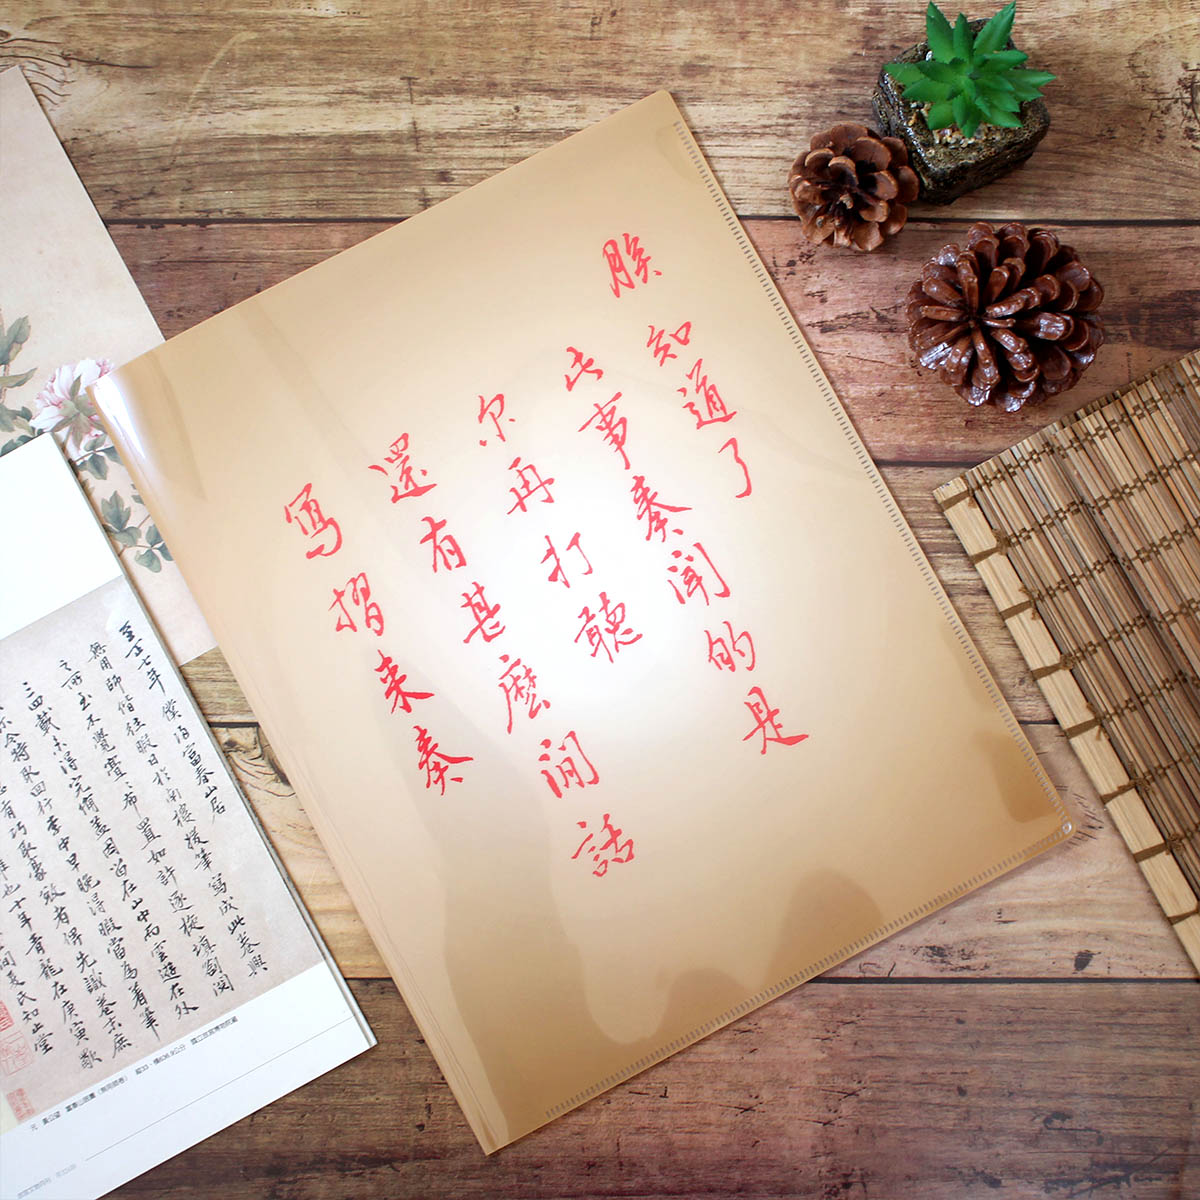 朕知道了
此事奏聞的是
尔再打聽
還有甚麼閒話
寫摺來奏
至正七年僕歸富春山居
無用師偕往暇日於南樓援筆寫成此卷興
之所至不覺亹亹布置如許逐旋填劄閱
三四載未得完備蓋因留在山中而雲遊在外
尔今特取回行李中早晚得暇當為著筆
慮有巧取豪敚者俾先識卷末庶
難也十年青龍在庚寅歜
間夏氏知止堂
元 黃公望 富春山居圖（無用師卷） 縱33、橫636.9公分 國立故宮博物院藏